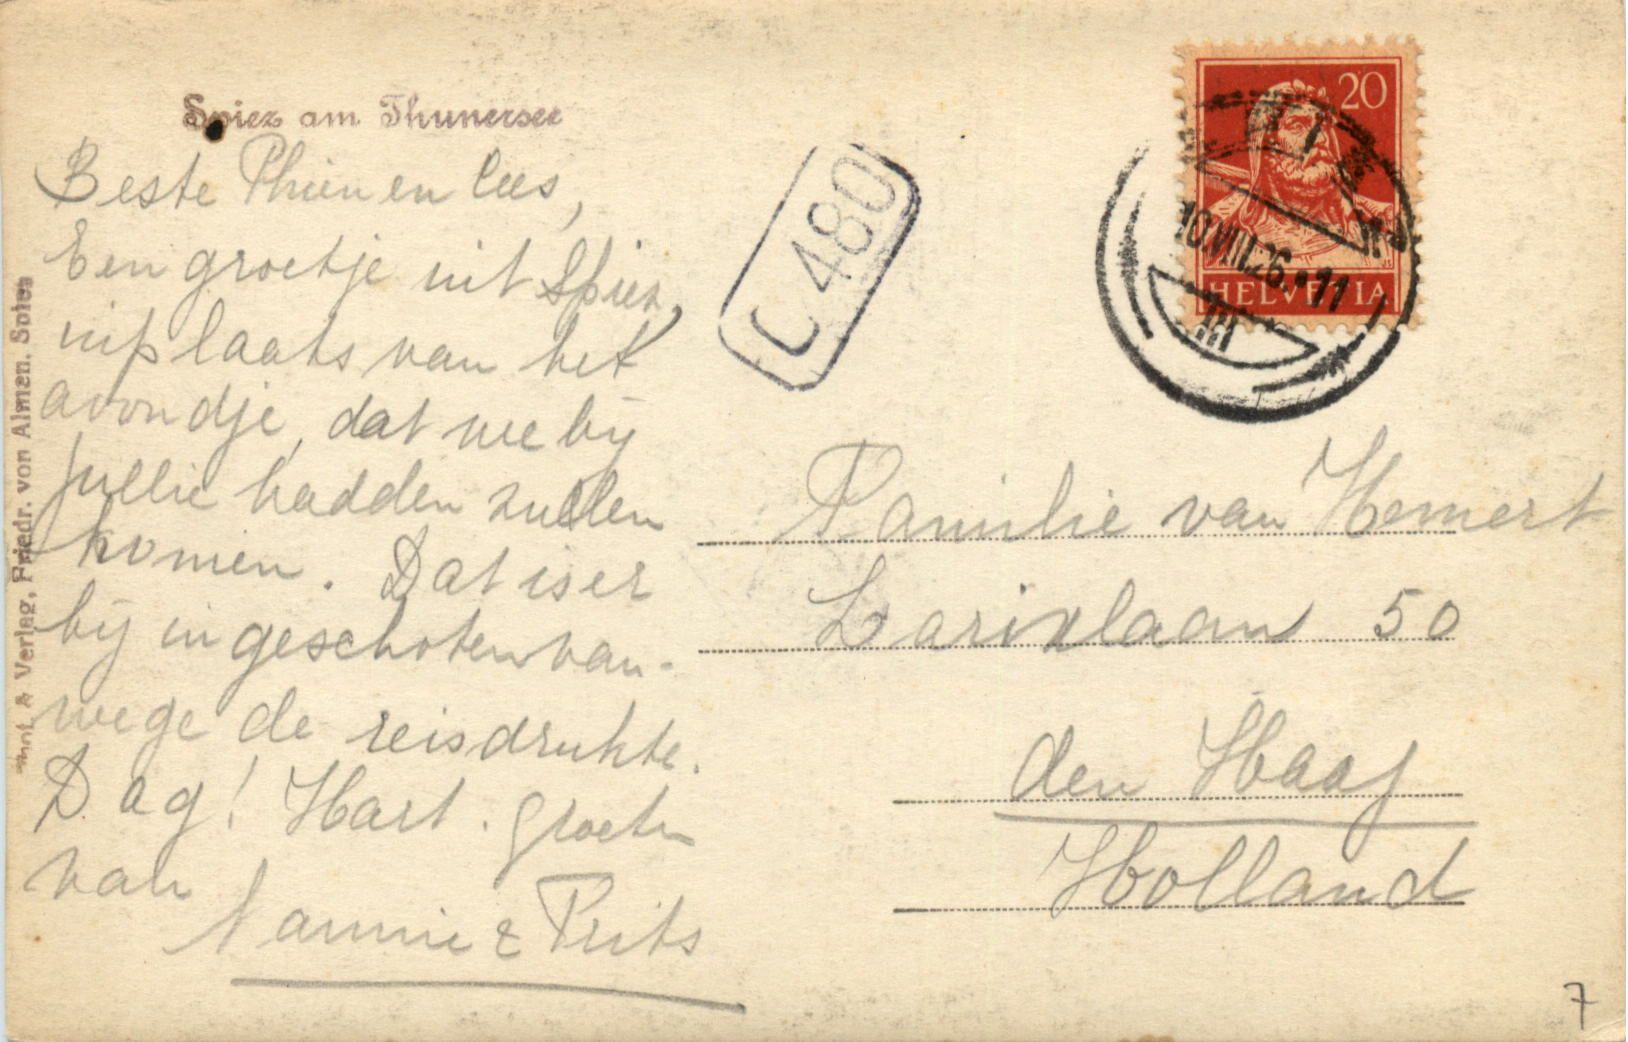 Spiez am Thunersee
Beste Phien en Cees,
Een groetje uit Spiez,
inplaats van het
avondje, dat we bij
jullie hadden zullen
komen. Dat is er
bij ingeschoten van-
wege de reisdrukte.
Dag! Hart. groeten
van
Nannie & Frits
Phot. & Verlag, Friedr. von Almen, Spiez
C 480
20
10.VIII.26.•11
III
HELVETIA
Familie van Hemert
Larixlaan 50
den Haag
Holland
7